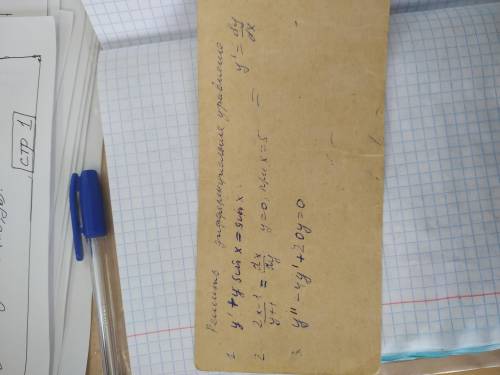 Решить дифференциальные уравнения
y' = dy/dx
1 y' + y sin x = sin x.
2 (2x-1)/(y+1) = dx/dy y=0, при x=5
3 y'' - 4y' + 20y = 0
СТР 1